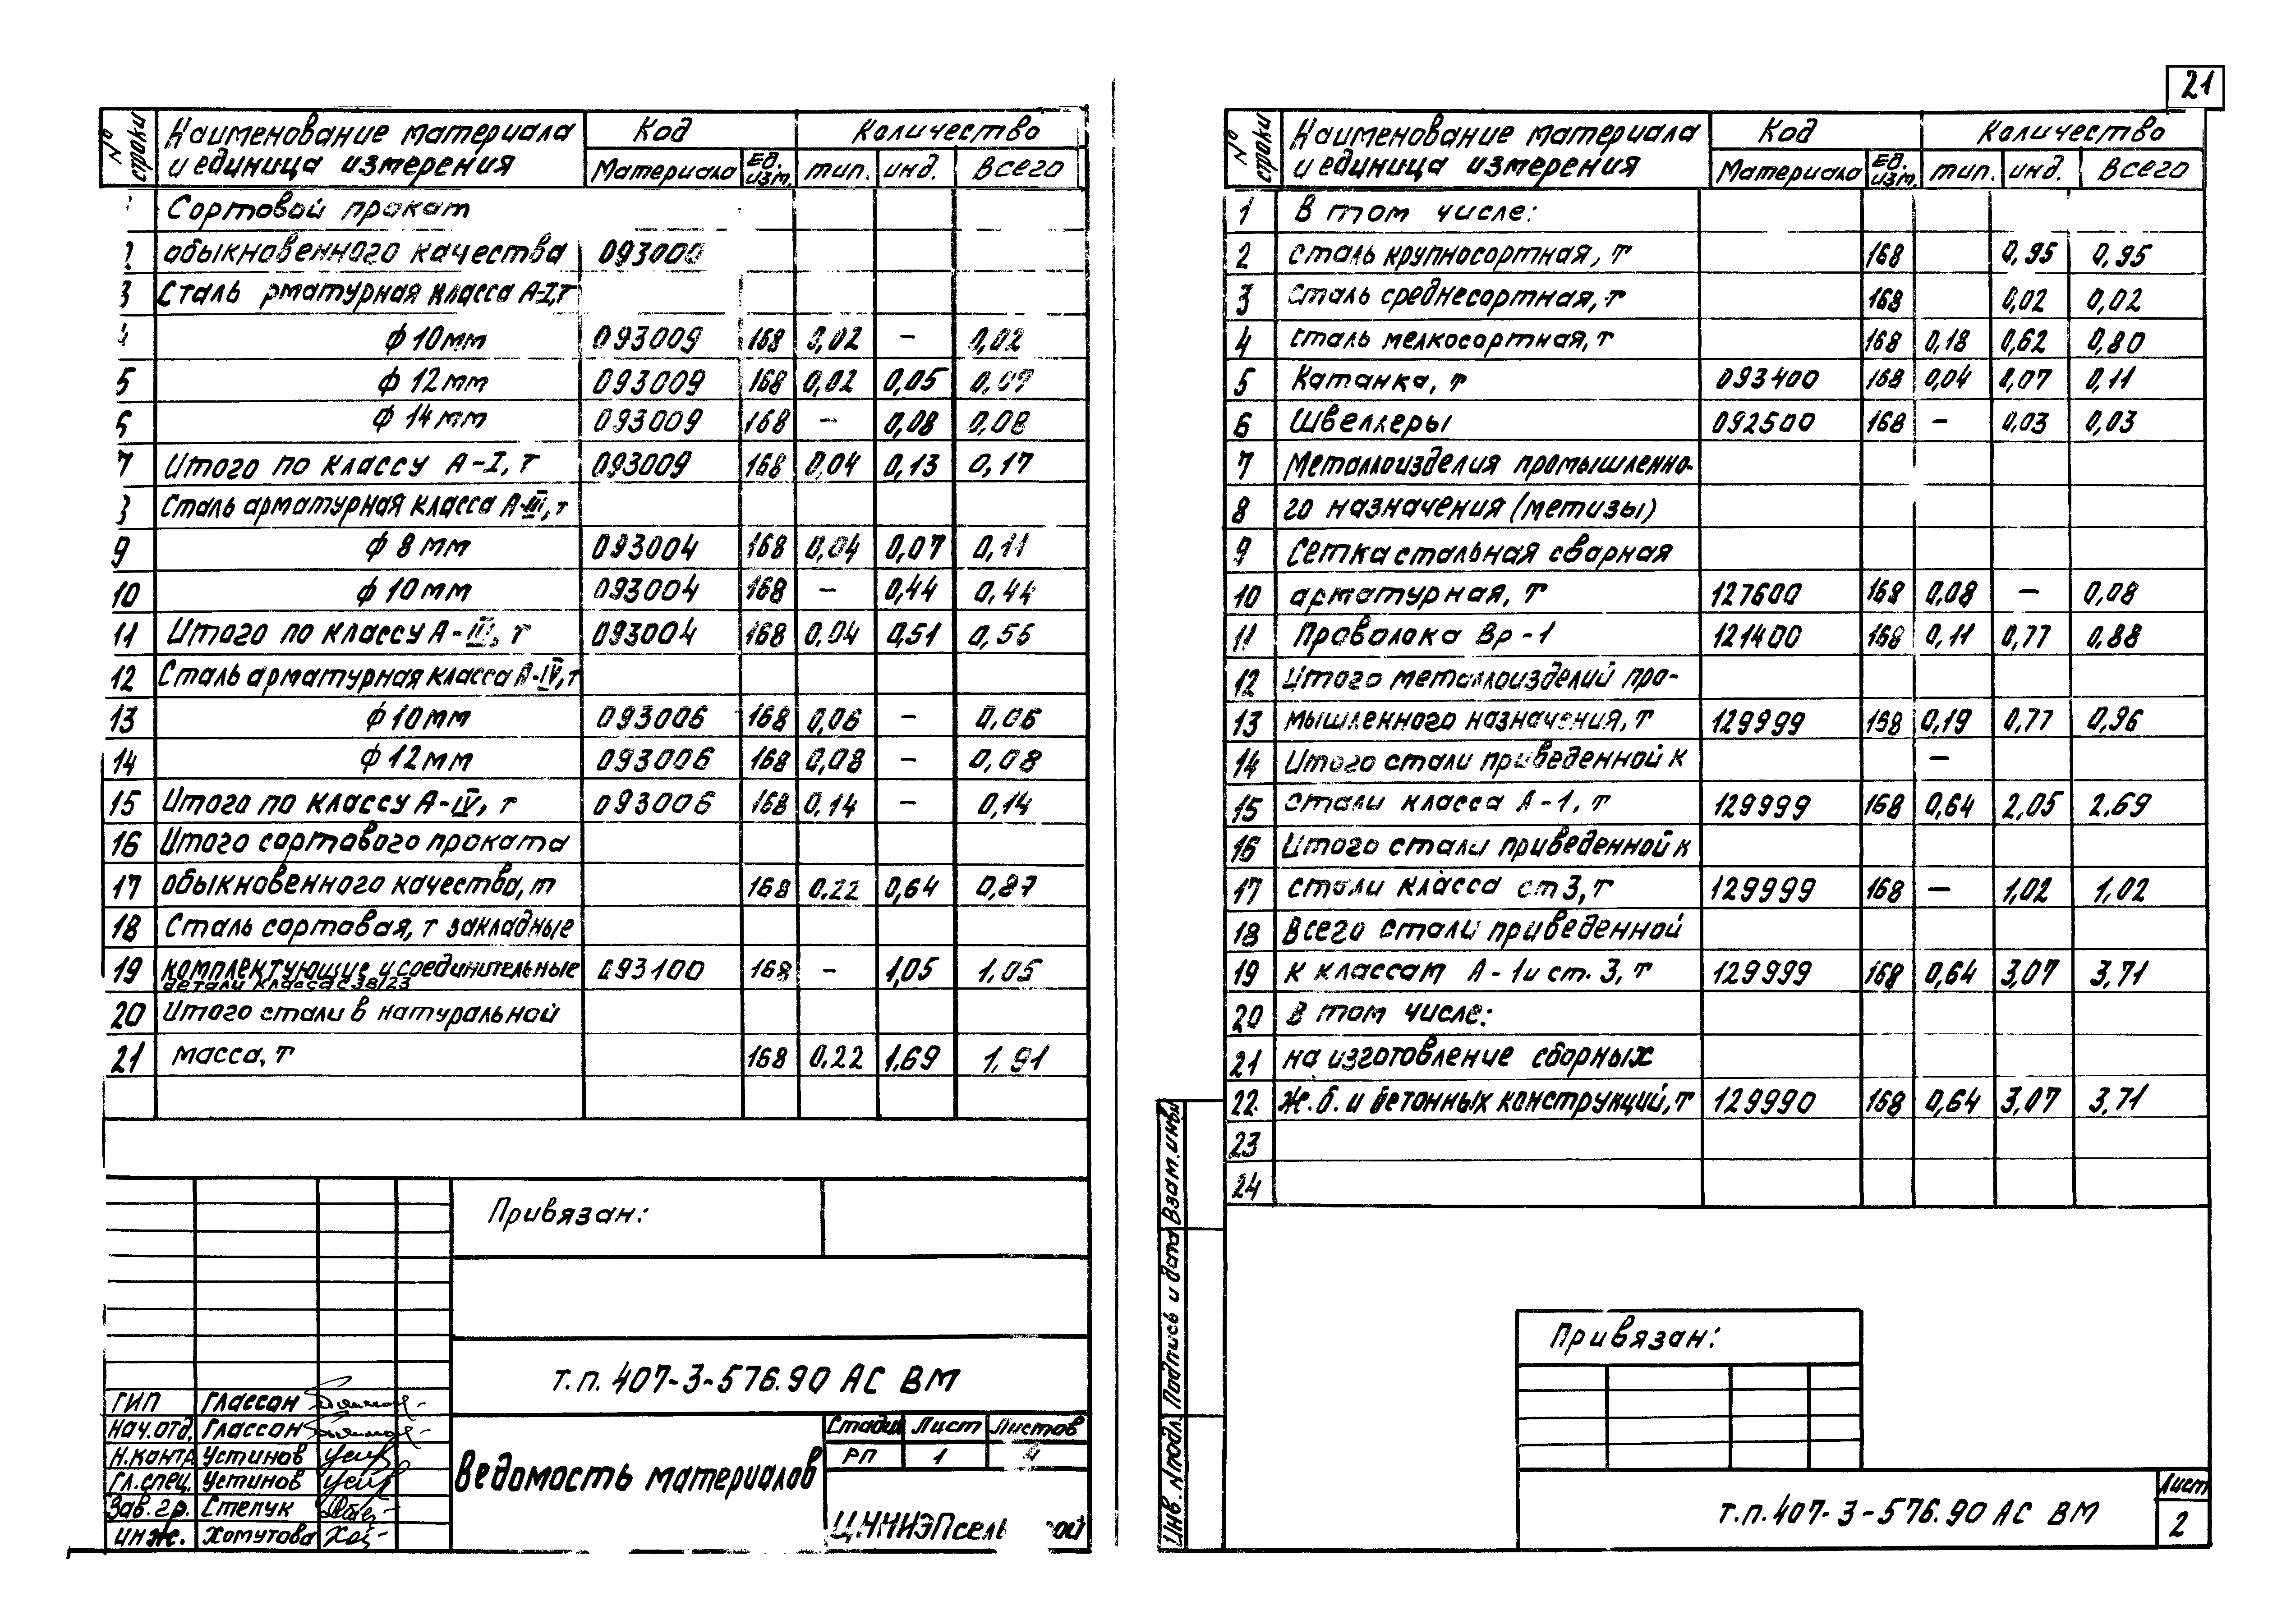 21
№ строки | Наименование материала и единица измерения | Код | Количество
Материала | Ед. изм. | тип. | инд. | Всего
Сортовой прокат
обыкновенного качества 093000
3 Сталь рматурная класса А-I, т
ф 10мм 093009 168 0,02 – 0,02
5 ф 12мм 093009 168 0,02 0,05 0,07
6 ф 14мм 093009 168 – 0,08 0,08
7 Итого по классу А-I, т 093009 168 0,04 0,13 0,17
Сталь арматурная класса А-III, т
9 ф 8мм 093004 168 0,04 0,07 0,11
10 ф 10мм 093004 168 – 0,44 0,44
11 Итого по классу А-III, т 093004 168 0,04 0,51 0,55
12 Сталь арматурная класса А-IV, т
13 ф 10мм 093006 168 0,06 – 0,06
14 ф 12мм 093006 168 0,08 – 0,08
15 Итого по классу А-IV, т 093006 168 0,14 – 0,14
16 Итого сортового проката
17 обыкновенного качества, т 168 0.22 0,64 0,87
18 Сталь сортовая, т закладные
19 комплектующие и соединительные 093100 168 – 1,05 1,05
детали класса с38/23
20 Итого стали в натуральной
21 масса, т 168 0.22 1,69 1,91
Привязан:
т.п. 407-3-576.90 АС ВМ
ГИП Глассан
Нач.отд. Глассан
Н.контр Устинов
Гл.спец. Устинов
Зав.гр. Степук
инж. Хомутова
Ведомость материалов
Стадия Лист Листов
РП 1 4
ЦНИИЭПсел ой
№ строки | Наименование материала и единица измерения | Код | Количество
Материала | Ед. изм. | тип. | инд. | Всего
1 В том числе:
2 сталь крупносортная, т 168 0,95 0,95
3 сталь среднесортная, т 168 0,02 0,02
4 сталь мелкосортная, т 168 0,18 0,62 0,80
5 Катанка, т 093400 168 0,04 0,07 0,11
6 Швеллеры 092500 168 – 0,03 0,03
7 Металлоизделия промышленно-
8 го назначения (метизы)
9 Сетка стальная сварная
10 арматурная, т 127600 168 0,08 – 0,08
11 Проволока Вр-1 121400 168 0,11 0,77 0,88
12 Итого металлоизделий про-
13 мышленного назначения, т 129999 168 0,19 0,77 0,96
14 Итого стали приведенной к –
15 стали класса А-1, т 129999 168 0,64 2,05 2.69
16 Итого стали приведенной к
17 стали класса ст3, т 129999 168 – 1,02 1,02
18 Всего стали приведенной
19 к классам А-1 и ст. 3, т 129999 168 0,64 3,07 3,71
20 В том числе:
21 на изготовление сборных
22. ж.б. и бетонных конструкций, т 129990 168 0,64 3,07 3,71
23
24
Инв. № подл. Подпись и дата Взам. инв №
Привязан:
т.п. 407-3-576.90 АС ВМ
Лист
2